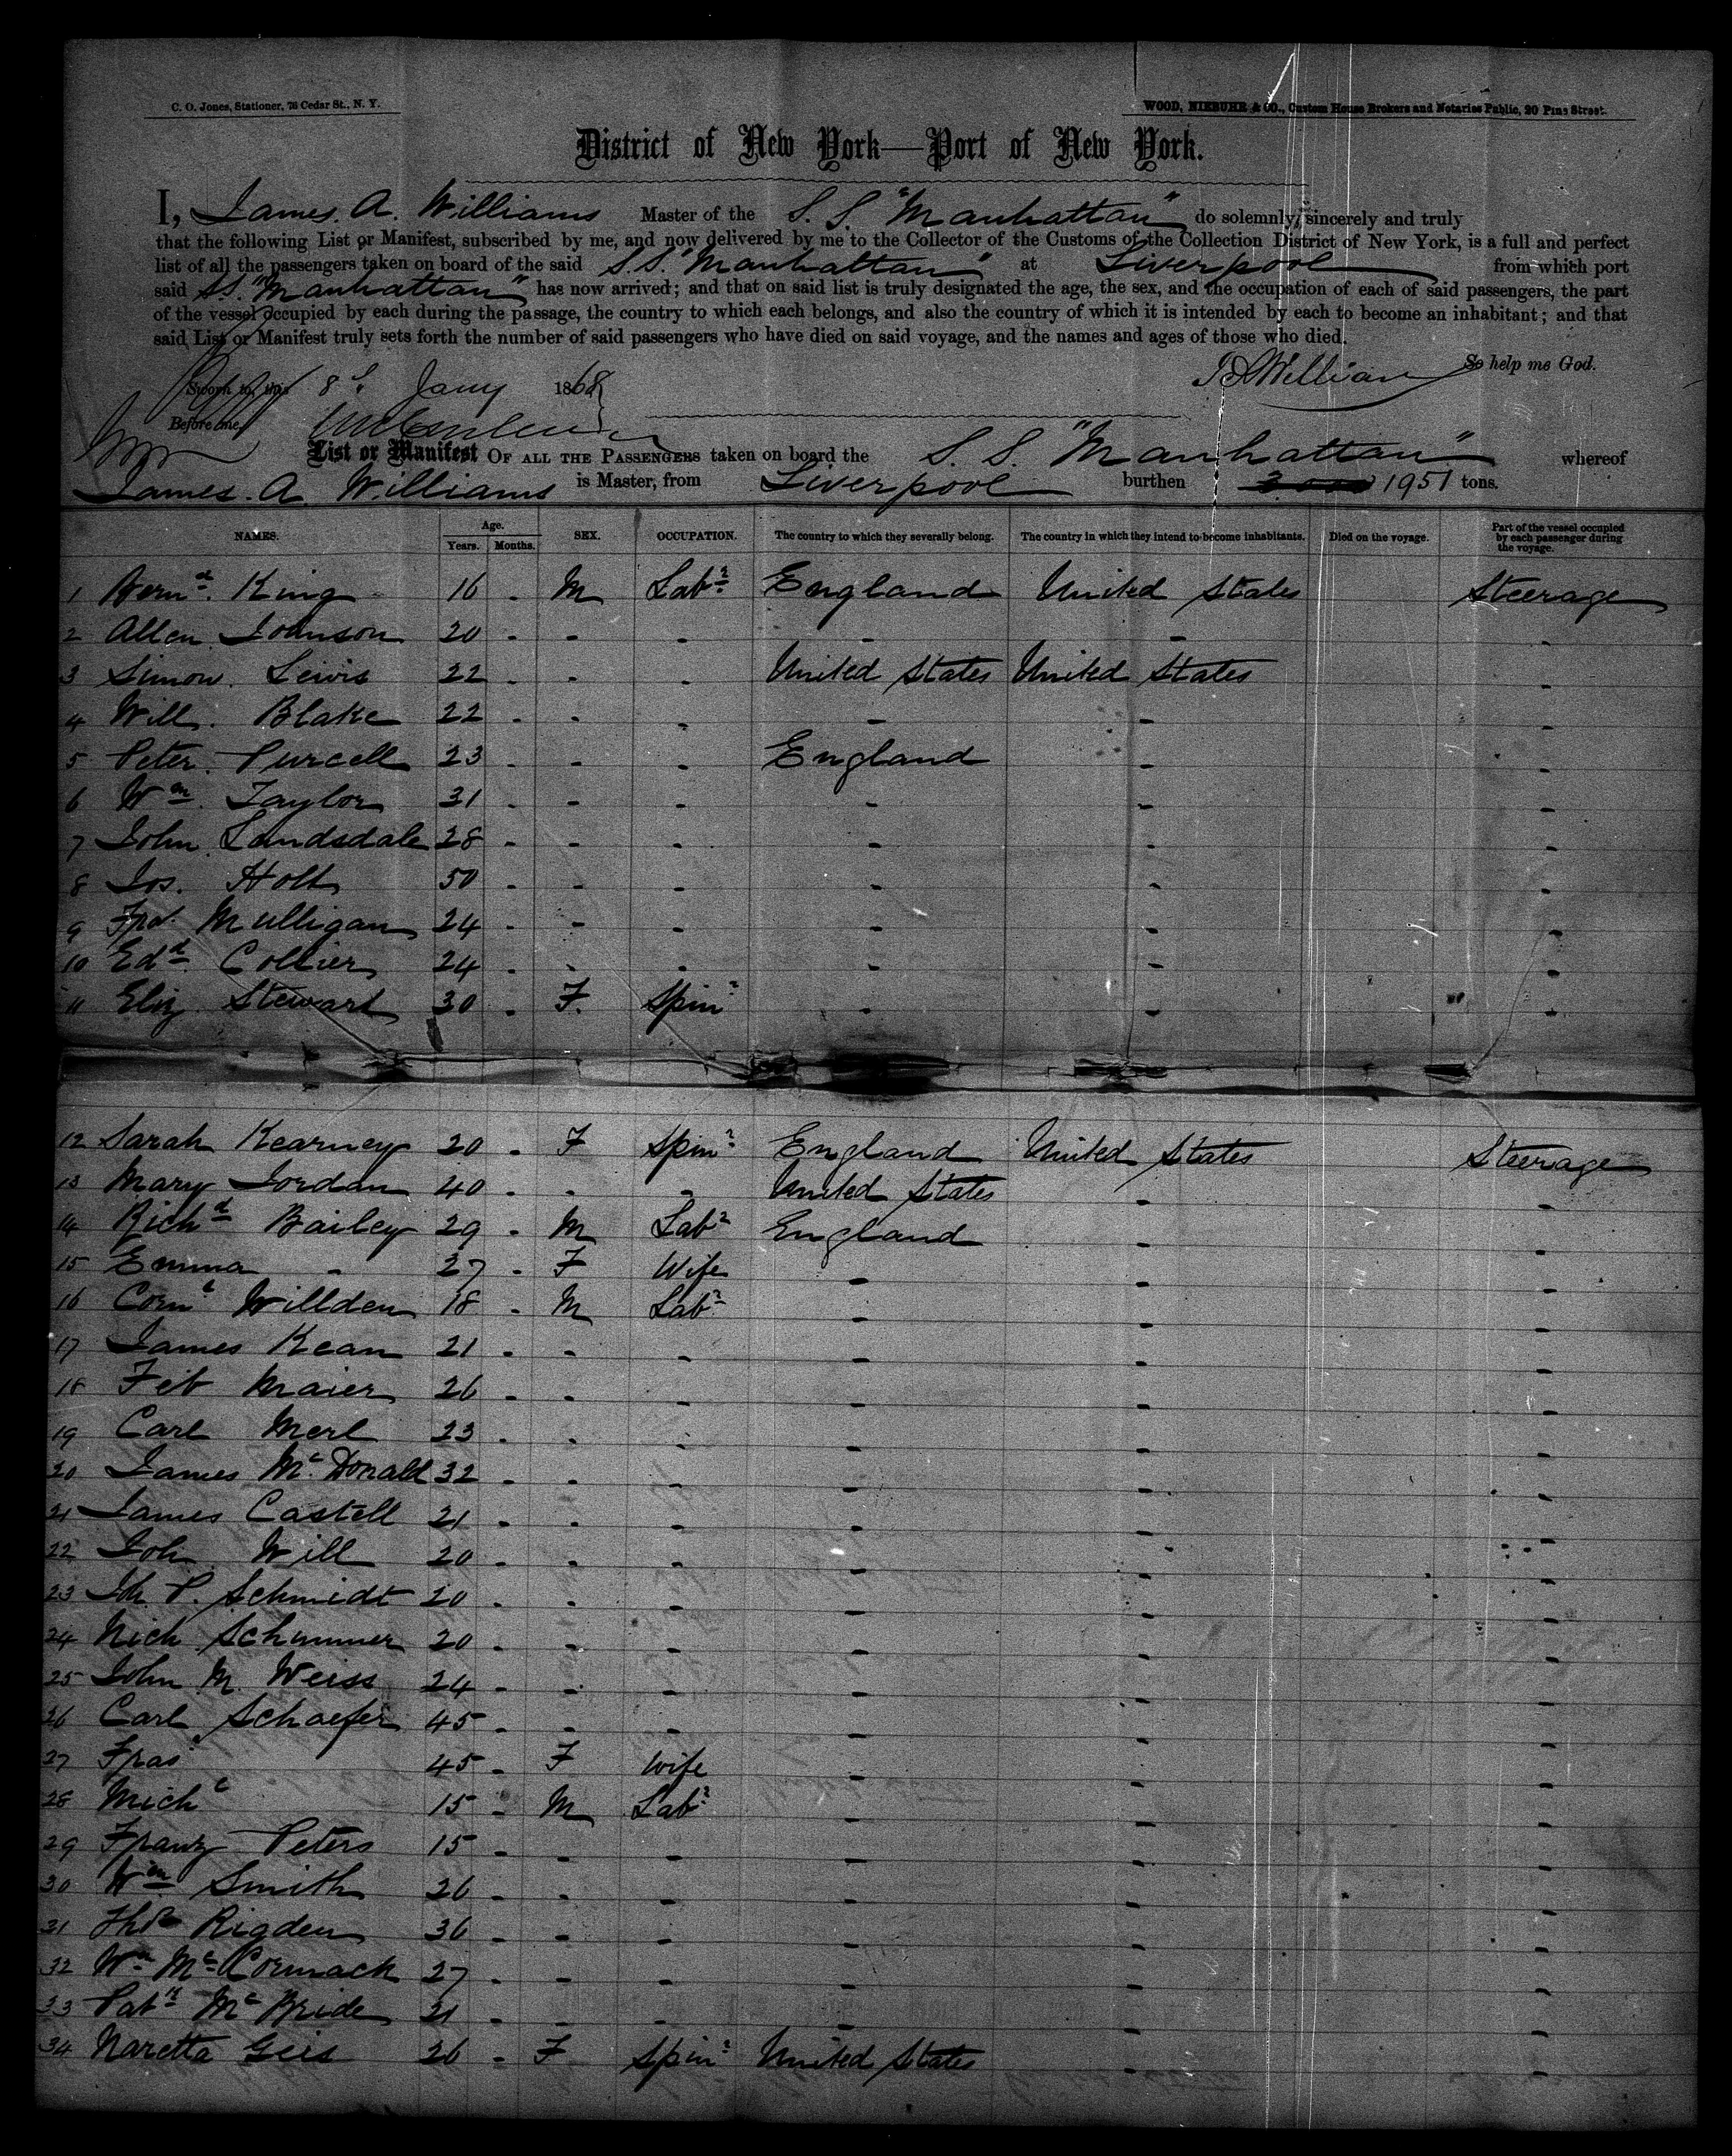 C. O. Jones, Stationer, 76 Cedar St., N. Y.
WOOD, NIEBUHR & CO., Custom House Brokers and Notaries Public, 20 Pine Street.
District of New York—Port of New York.
I, James. A. Williams Master of the S. S. "Manhattan" do solemnly, sincerely and truly
that the following List or Manifest, subscribed by me, and now delivered by me to the Collector of the Customs of the Collection District of New York, is a full and perfect
list of all the passengers taken on board of the said S.S. "Manhattan" at Liverpool from which port
said S.S. "Manhattan" has now arrived; and that on said list is truly designated the age, the sex, and the occupation of each of said passengers, the part
of the vessel occupied by each during the passage, the country to which each belongs, and also the country of which it is intended by each to become an inhabitant; and that
said List or Manifest truly sets forth the number of said passengers who have died on said voyage, and the names and ages of those who died.
So help me God.
Sworn to this 8 Jany 1868 JAWilliams
Before me,
List or Manifest OF ALL THE PASSENGERS taken on board the S. S. "Manhattan" whereof
James. A. Williams is Master, from Liverpool burthen 1951 tons.
NAMES. Age. Years. Months. SEX. OCCUPATION. The country to which they severally belong. The country in which they intend to become inhabitants. Died on the voyage. Part of the vessel occupied by each passenger during the voyage.
1 Bernd. King 16 - M Labr England United States Steerage
2 Allen Johnson 20 - - - - - -
3 Simon. Lewis 22 - - - United States United States -
4 Will. Blake 22 - - - - - -
5 Peter. Purcell 23 - - - England - -
6 Wm. Taylor 31 - - - - - -
7 John Landsdale 28 - - - - - -
8 Jos. Holt 50 - - - - - -
9 Frd. Mulligan 24 - - - - - -
10 Edd. Collier 24 - - - - - -
11 Eliz Stewart 30 - F. Spinr - - -
12 Sarah Kearney 20 - F Spinr England United States Steerage
13 Mary Jordan 40 - - - United States - -
14 Richd Bailey 29 - M Labr England - -
15 Emma - 27 - F Wife - - -
16 Corns Willden 18 - M Labr - - -
17 James Kean 21 - - - - - -
18 Feb Maier 26 - - - - - -
19 Carl Merl 23 - - - - - -
20 James Mc.Donald 32 - - - - - -
21 James Castell 21 - - - - - -
22 Joh. Will 20 - - - - - -
23 Joh P. Schmidt 20 - - - - - -
24 Nich Schummer 20 - - - - - -
25 John M. Weiss 24 - - - - - -
26 Carl Schaefer 45 - - - - - -
27 Fras 45 - F Wife - - -
28 Michl 15 - M Labr - - -
29 Franz Peters 15 - - - - - -
30 Wm Smith 26 - - - - - -
31 Thos Rigden 36 - - - - - -
32 Wm McCormack 27 - - - - - -
33 Patk McBride 21 - - - - - -
34 Naretta Geis 26 - F Spinr United States - -